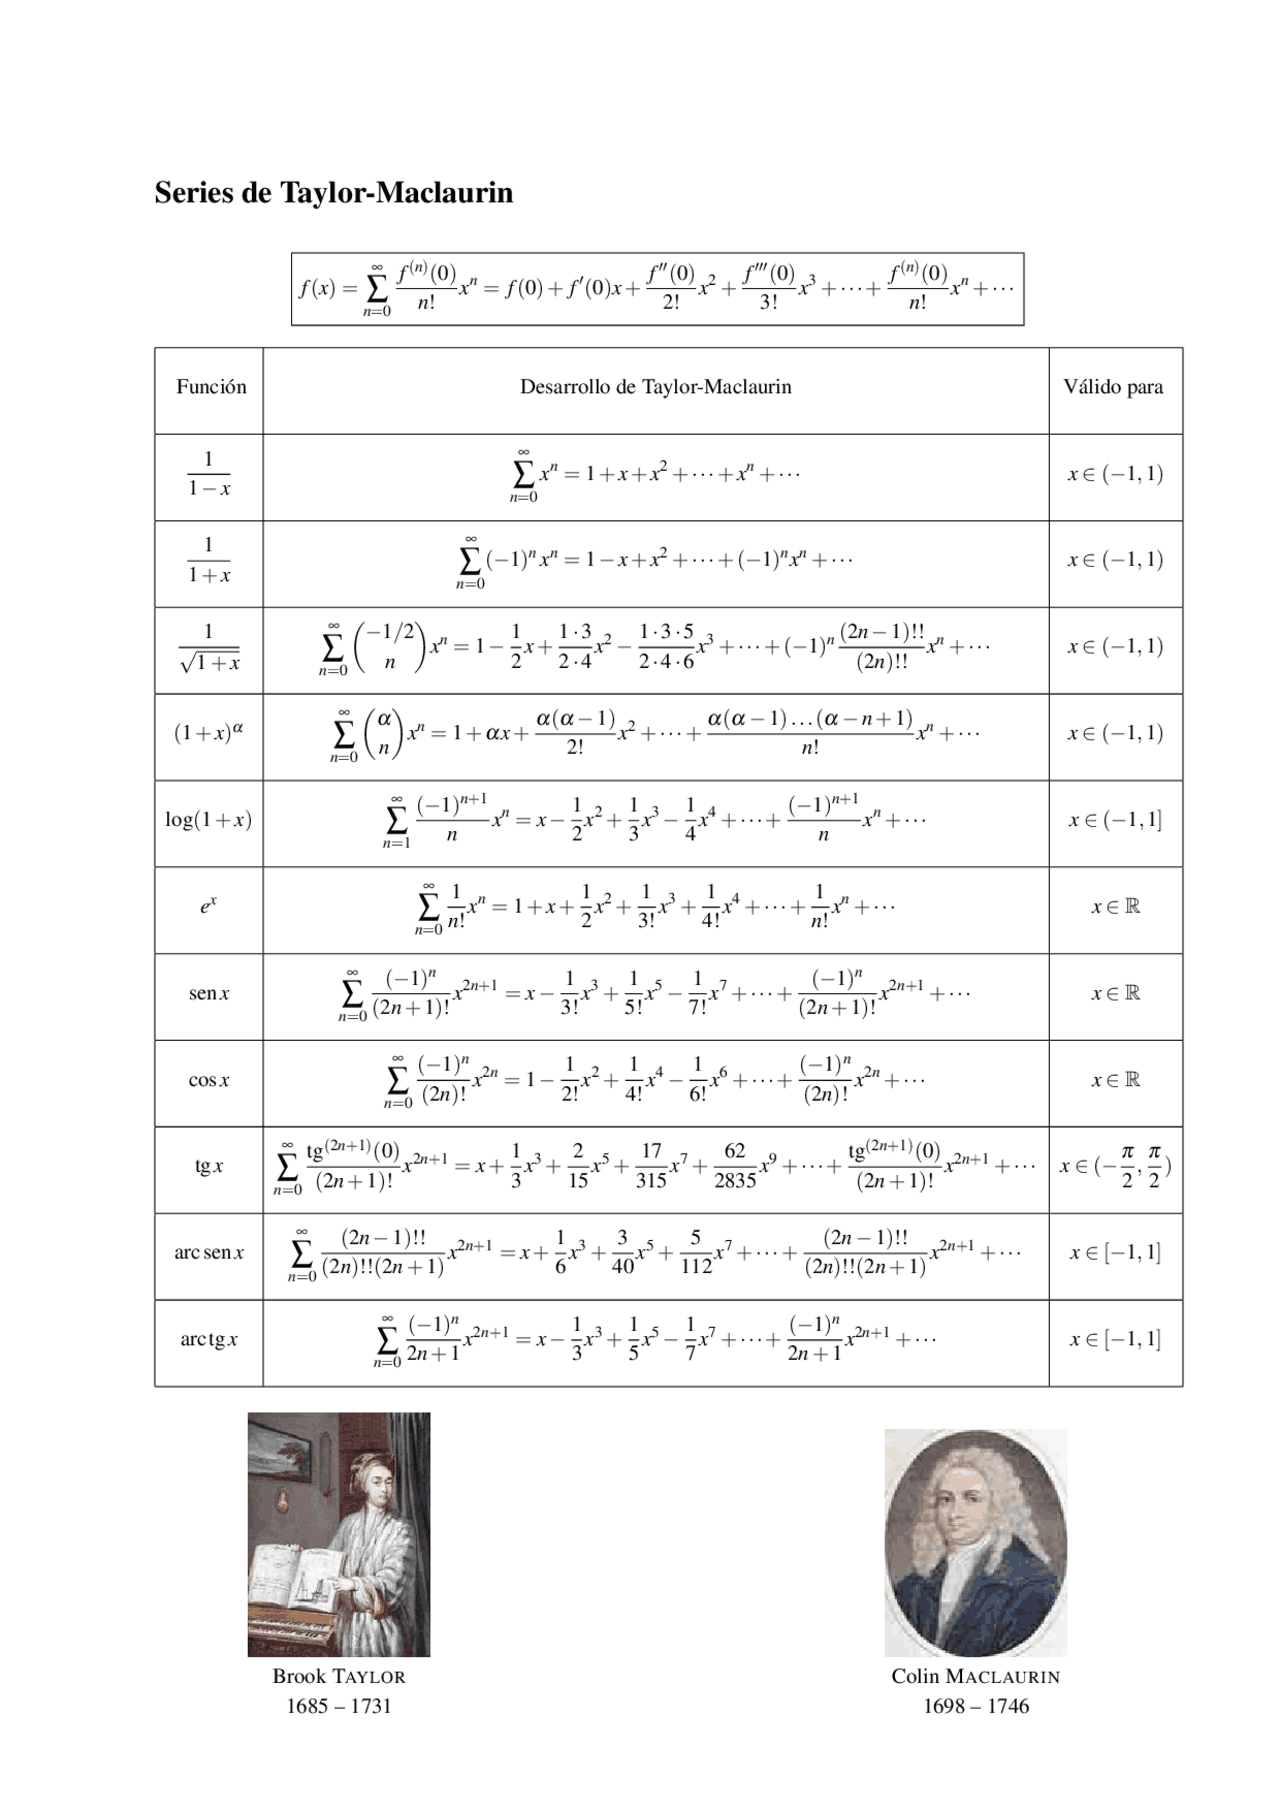 Series de Taylor-Maclaurin
f(x) = ∑_{n=0}^{∞} \frac{f^{(n)}(0)}{n!} x^n = f(0) + f′(0)x + \frac{f″(0)}{2!} x^2 + \frac{f‴(0)}{3!} x^3 + ⋯ + \frac{f^{(n)}(0)}{n!} x^n + ⋯
Función Desarrollo de Taylor-Maclaurin Válido para
\frac{1}{1−x} ∑_{n=0}^{∞} x^n = 1 + x + x^2 + ⋯ + x^n + ⋯ x ∈ (−1, 1)
\frac{1}{1+x} ∑_{n=0}^{∞} (−1)^n x^n = 1 − x + x^2 + ⋯ + (−1)^n x^n + ⋯ x ∈ (−1, 1)
\frac{1}{\sqrt{1+x}} ∑_{n=0}^{∞} \binom{−1/2}{n} x^n = 1 − \frac{1}{2} x + \frac{1·3}{2·4} x^2 − \frac{1·3·5}{2·4·6} x^3 + ⋯ + (−1)^n \frac{(2n−1)!!}{(2n)!!} x^n + ⋯ x ∈ (−1, 1)
(1+x)^α ∑_{n=0}^{∞} \binom{α}{n} x^n = 1 + αx + \frac{α(α−1)}{2!} x^2 + ⋯ + \frac{α(α−1)…(α−n+1)}{n!} x^n + ⋯ x ∈ (−1, 1)
log(1+x) ∑_{n=1}^{∞} \frac{(−1)^{n+1}}{n} x^n = x − \frac{1}{2} x^2 + \frac{1}{3} x^3 − \frac{1}{4} x^4 + ⋯ + \frac{(−1)^{n+1}}{n} x^n + ⋯ x ∈ (−1, 1]
e^x ∑_{n=0}^{∞} \frac{1}{n!} x^n = 1 + x + \frac{1}{2} x^2 + \frac{1}{3!} x^3 + \frac{1}{4!} x^4 + ⋯ + \frac{1}{n!} x^n + ⋯ x ∈ ℝ
sen x ∑_{n=0}^{∞} \frac{(−1)^n}{(2n+1)!} x^{2n+1} = x − \frac{1}{3!} x^3 + \frac{1}{5!} x^5 − \frac{1}{7!} x^7 + ⋯ + \frac{(−1)^n}{(2n+1)!} x^{2n+1} + ⋯ x ∈ ℝ
cos x ∑_{n=0}^{∞} \frac{(−1)^n}{(2n)!} x^{2n} = 1 − \frac{1}{2!} x^2 + \frac{1}{4!} x^4 − \frac{1}{6!} x^6 + ⋯ + \frac{(−1)^n}{(2n)!} x^{2n} + ⋯ x ∈ ℝ
tg x ∑_{n=0}^{∞} \frac{tg^{(2n+1)}(0)}{(2n+1)!} x^{2n+1} = x + \frac{1}{3} x^3 + \frac{2}{15} x^5 + \frac{17}{315} x^7 + \frac{62}{2835} x^9 + ⋯ + \frac{tg^{(2n+1)}(0)}{(2n+1)!} x^{2n+1} + ⋯ x ∈ (−\frac{π}{2}, \frac{π}{2})
arc sen x ∑_{n=0}^{∞} \frac{(2n−1)!!}{(2n)!!(2n+1)} x^{2n+1} = x + \frac{1}{6} x^3 + \frac{3}{40} x^5 + \frac{5}{112} x^7 + ⋯ + \frac{(2n−1)!!}{(2n)!!(2n+1)} x^{2n+1} + ⋯ x ∈ [−1, 1]
arc tg x ∑_{n=0}^{∞} \frac{(−1)^n}{2n+1} x^{2n+1} = x − \frac{1}{3} x^3 + \frac{1}{5} x^5 − \frac{1}{7} x^7 + ⋯ + \frac{(−1)^n}{2n+1} x^{2n+1} + ⋯ x ∈ [−1, 1]
Brook TAYLOR
1685 – 1731
Colin MACLAURIN
1698 – 1746